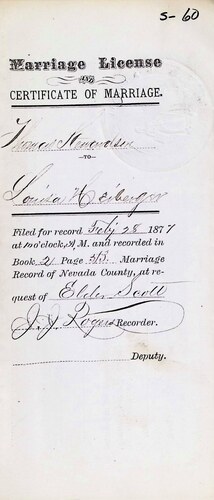 S-60
Marriage License
AND
CERTIFICATE OF MARRIAGE.
Thomas
—TO—
Louisa
Filed for record Feb'y 28 1877
at 10 o'clock, A.M. and recorded in
Book 2 Page 313. Marriage
Record of Nevada County, at re-
quest of Elder Scott
J. J. Rogers Recorder.
Deputy.